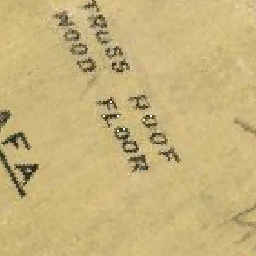 TRUSS ROOF
WOOD FLOOR
AFA